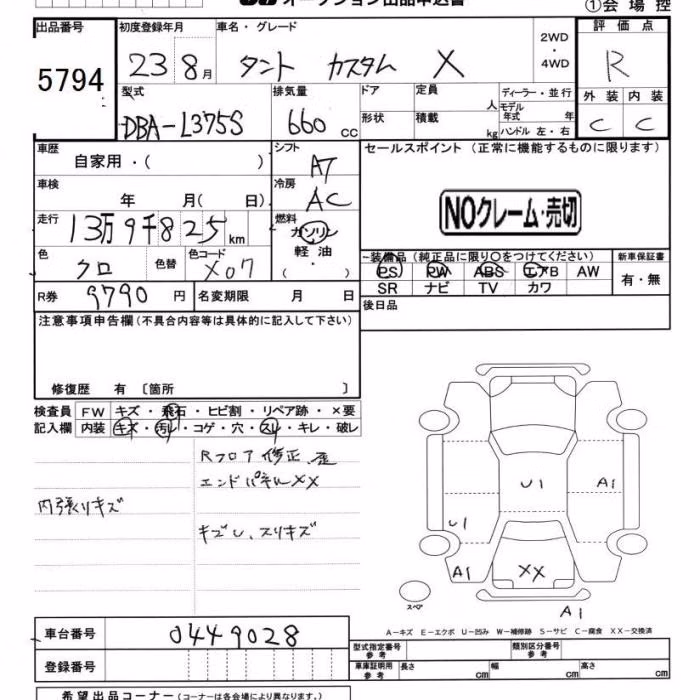 オークション出品申込書
①会場控
出品番号 初度登録年月 車名・グレード 評価点
5794 23 8月 タント カスタム X 2WD・4WD R
型式 排気量 ドア 定員 人 ディーラー・並行 外装 内装
DBA-L375S 660cc 形状 積載 kg モデル年式 年 ハンドル 左・右 C C
車歴 自家用・( ) シフト AT セールスポイント(正常に機能するものに限ります)
車検 年 月( 日) 冷房 AC
NOクレーム・売切
走行 13万9千825km 燃料 ガソリン 軽油 ( ・ )
色 クロ 色替 色コード X07
~装備品(純正品に限り○をつけてください) 新車保証書
PS PW ABS エアB AW 有・無
SR ナビ TV カワ
R券 9790円 名変期限 月 日 後日品
注意事項申告欄(不具合内容等は具体的に記入して下さい)
修復歴 有 〔箇所 〕
検査員 FW キズ・飛石・ヒビ割・リペア跡・×要
記入欄 内装 キズ・汚レ・コゲ・穴・スレ・キレ・破レ
Rフロア修正、歪
エンドパネルXX
内張りキズ
キズU、スリキズ
U1 A1
U1
A1 XX
スペア
A1
A-キズ E-エクボ U-凹み W-補修跡 S-サビ C-腐食 XX-交換済
車台番号 0449028
型式指定番号 参考 類別区分番号 参考
登録番号 車庫証明用 参考 長さ cm 幅 cm 高さ cm
希望出品コーナー(コーナーは各会場により異なります。)